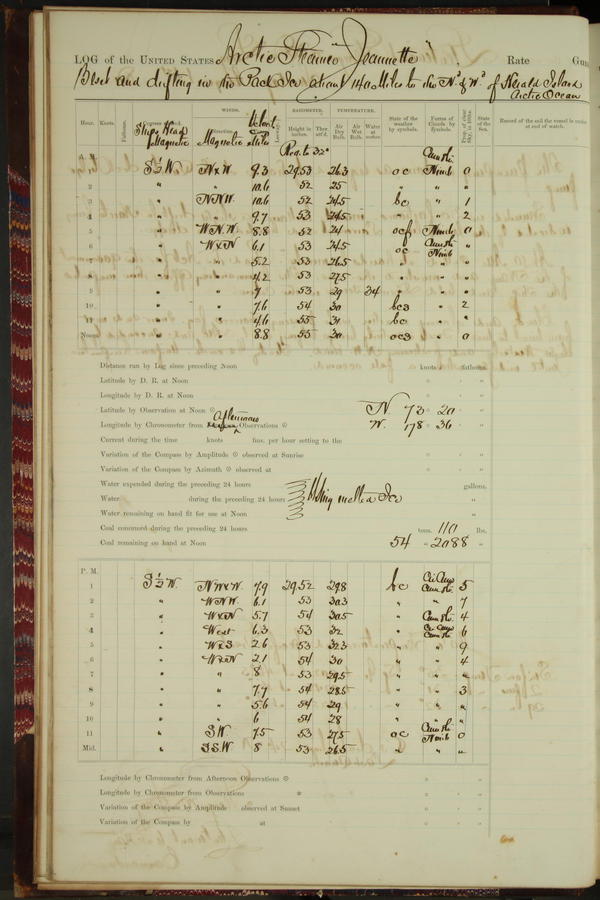 LOG of the UNITED STATES Arctic Steamer "Jeannette" Rate Guns
Beset and drifting in the Pack Ice about 140 Miles to the Nd & Wd of Herald Island
Arctic Ocean
WINDS. BAROMETER. TEMPERATURE.
Hour. Knots. Fathoms. Ships Head Magnetic Direction. Magnetic Velocity Miles Height in inches. Ther. att'd. Air Dry Bulb. Air Wet Bulb. Water at surface. State of the weather by symbols. Forms of Clouds by Symbols. Prop. of clear Sky, in 10ths. State of the Sea. Record of the sail the vessel is under at end of watch.
Red. to 32°
A. M. Cum Str.
1 S ½ W. N x W 9.3 29.53 26.3 oc Nimb 0
2 " " 10.6 52 25 " " "
3 " NNW. 10.6 52 24.5 bc " 1
4 " " 9.7 53 24.5 " " 2
5 " W.N.W. 8.8 52 24 ocf Nimb 0
6 " W x N 6.1 53 24.5 oc Cum Str. Nimb "
7 " " 5.2 53 26.5 " " "
8 " " 4.2 53 27.5 " " "
9 " " 7 53 29 34 " " "
10 " " 7.6 54 30 bcs " 2
11 " " 4.6 55 31 bc " "
Noon " " 8.8 55 30 ocs " 0
Distance run by Log since preceding Noon knots fathoms.
Latitude by D. R. at Noon ° ' "
Longitude by D. R. at Noon ° ' "
Latitude by Observation at Noon N. 73° 20 "
Longitude by Chronometer from Afternoon Observations W. 178° 36 "
Current during the time knots fms. per hour setting to the
Variation of the Compass by Amplitude observed at Sunrise ° ' "
Variation of the Compass by Azimuth observed at ° ' "
Water expended during the preceding 24 hours gallons.
Water during the preceding 24 hours Using melted Ice "
Water remaining on hand fit for use at Noon "
Coal consumed during the preceding 24 hours tons. 110 lbs.
Coal remaining on hand at Noon 54 " 2088 "
P. M.
1 S ½ W. NWxW. 7.9 29.52 29.8 bc Ci Cum Cum Str. 5
2 " WNW. 6.1 53 30.3 " " 7
3 " WxN 5.7 54 30.5 " Cum Str. 4
4 " West 6.3 53 32 " Ci Cum Cum Str. 6
5 " WxS 2.6 53 32.3 " " 9
6 " WxN 2.1 54 30 " " 4
7 " " 8 53 29.5 " " "
8 " " 7.7 54 28.5 " " 3
9 " " 5.6 54 29 " " "
10 " " 6 54 28 " " "
11 " S.W. 7.5 53 27.5 oc Cum Str. Nimb 0
Mid. " S.S.W. 8 53 26.5 " " "
Longitude by Chronometer from Afternoon Observations ° ' "
Longitude by Chronometer from Observations ° ' "
Variation of the Compass by Amplitude observed at Sunset ° ' "
Variation of the Compass by at ° ' "